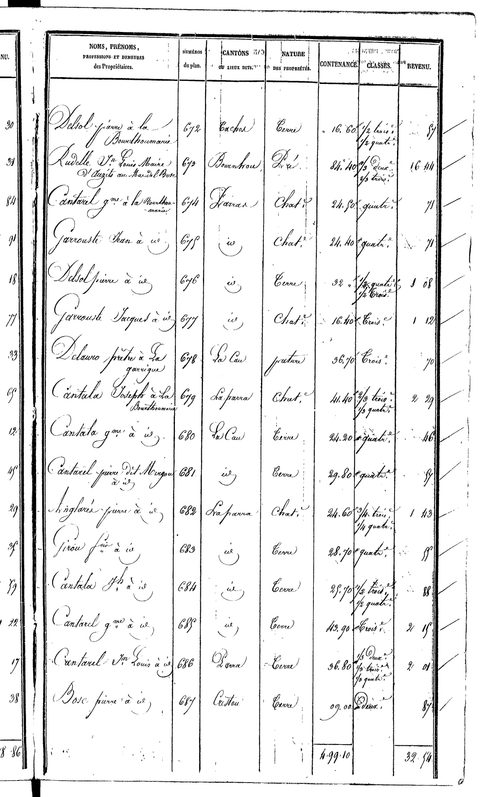 NU. NOMS, PRÉNOMS, PROFESSIONS ET DEMEURES des Propriétaires. NUMÉROS du plan. CANTONS OU LIEUX DITS. NATURE DES PROPRIÉTÉS. CONTENANCE. CLASSES. REVENU.
30 Delsol pierre à la Bourthoumarie 672 Terre 16.60 1/2 trois. 1/2 quat. 57
Jn Louis Maire 673 Pré 24.40 16 44
84 Cantarel gme à la Bourthoumarie 674 Chat. 24.50 quatr. 71
91 Garrouste Jean à id 675 id Chat. 24.40 quatr. 71
18 Delsol pierre à id 676 id Terre 32. 1/2 quatr. 1/2 trois. 1 08
77 Garrouste Jacques à id 677 id Chat. 16.40 Trois. 1 12
33 Delauro prêtre à La garrigue 678 La Cau pature 36.70 Trois. 70
65 Cantala Joseph à La Bourthoumarie 679 La parra Chat. 41.40 2/3 trois. 1/3 quatr. 2 29
12 Cantala gme à id 680 La Cau Terre 24.20 quatr. 46
45 Cantarel pierre dit à id 681 id Terre 29.80 quatr. 57
29 Anglarés pierre à id 682 La parra Chat. 24.60 3/4 trois. 1/4 quatr. 1 43
35 Girou à id 683 id Terre 28.70 quatr. 55
59 Cantala Jh à id 684 id Terre 25.70 1/2 trois. 1/2 quatr. 88
1 22 Cantarel gme à id 685 id Terre 43.90 Trois. 2 15
17 Cantarel Jn Louis à id 686 Parra Terre 36.80 1/3 Deux. 1/3 trois. 1/3 quatr. 2 01
38 Bosc pierre à id 687 Terre 09.00 Deux. 87
8 86 4.99.10 32.54